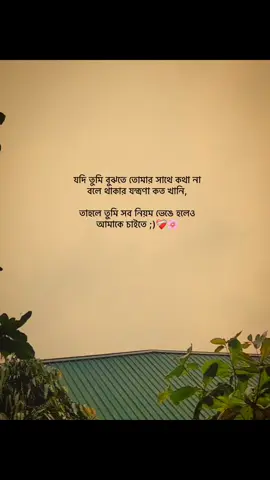 যদি তুমি বুঝতে তোমার সাথে কথা না
বলে থাকার যন্ত্রণা কত খানি,
তাহলে তুমি সব নিয়ম ভেঙে হলেও
আমাকে চাইতে ;)❤️‍🩹🌸